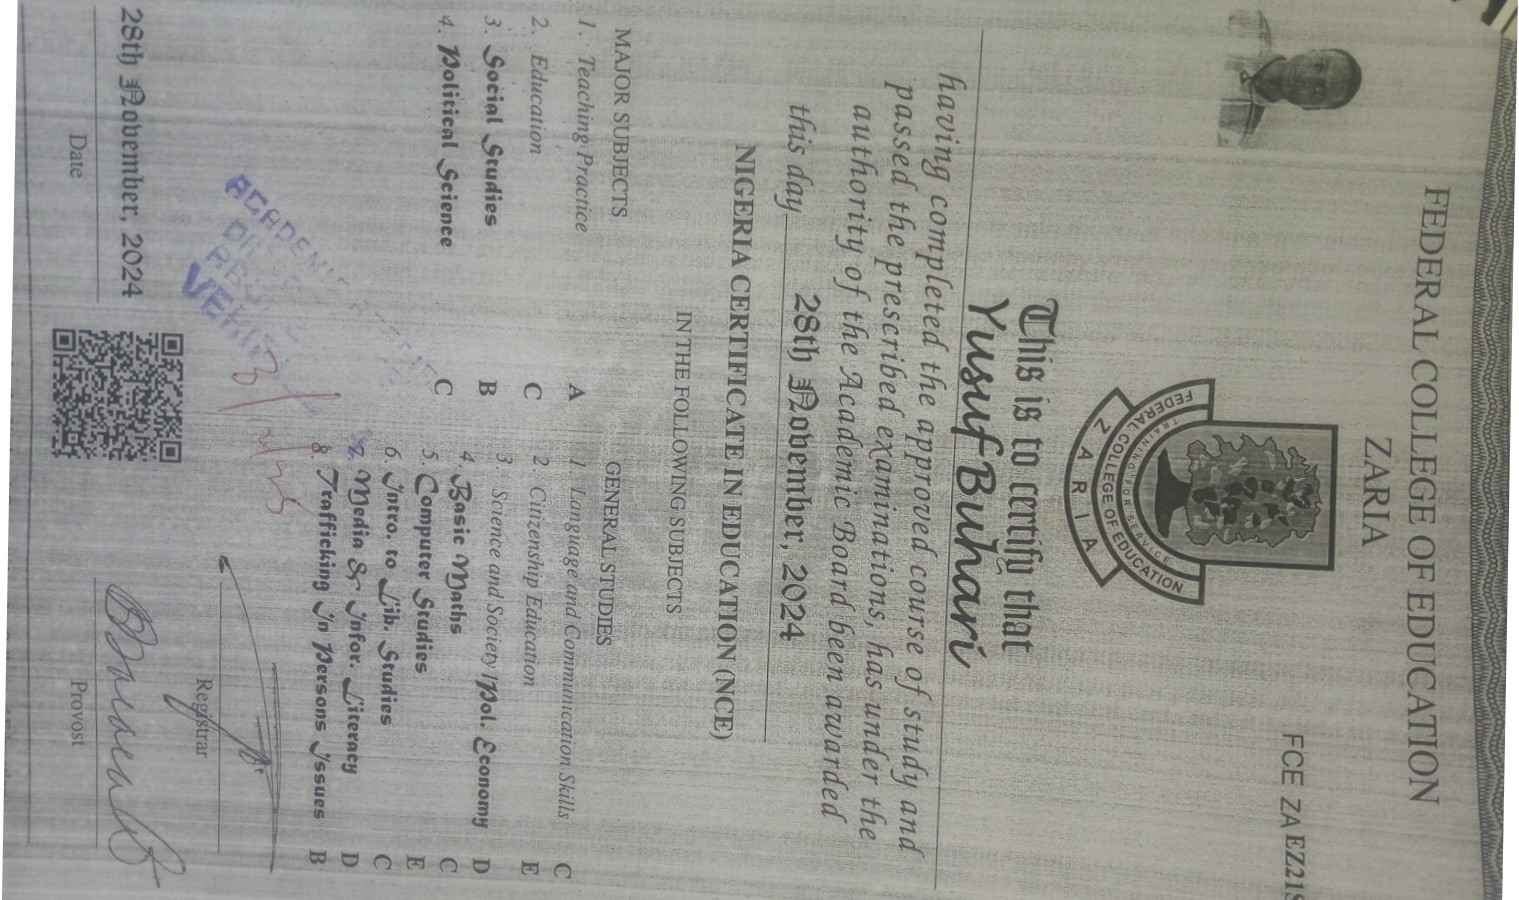 FEDERAL COLLEGE OF EDUCATION
ZARIA
FCE ZA EZ21S
FEDERAL COLLEGE OF EDUCATION
TRAINING FOR SERVICE
ZARIA
This is to certify that
Yusuf Buhari
having completed the approved course of study and
passed the prescribed examinations, has under the
authority of the Academic Board been awarded
this day 28th November, 2024
NIGERIA CERTIFICATE IN EDUCATION (NCE)
IN THE FOLLOWING SUBJECTS
MAJOR SUBJECTS
1. Teaching Practice A
2. Education C
3. Social Studies B
4. Political Science C
GENERAL STUDIES
1 Language and Communication Skills C
2 Citizenship Education E
3. Science and Society/Pol. Economy D
4. Basic Maths C
5. Computer Studies E
6 Intro. to Lib. Studies C
7. Media & Infor. Literacy D
8 Trafficking In Persons Issues B
ACADEMIC
28th November, 2024
Date
Registrar
Provost